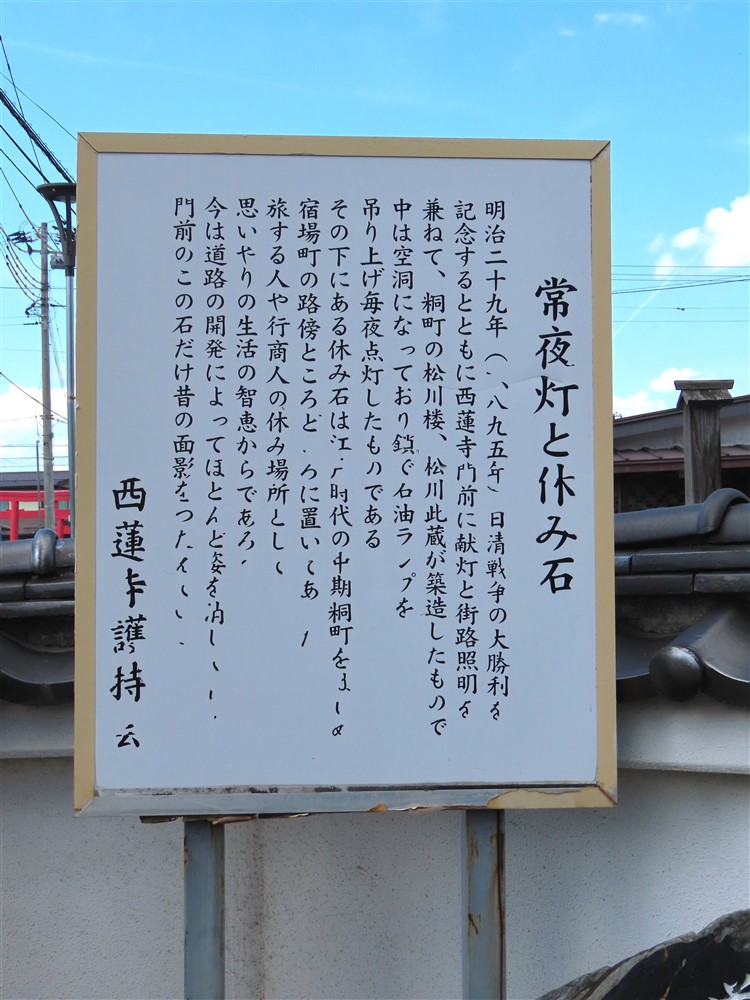 常夜灯と休み石
明治二十九年（一八九五年）日清戦争の大勝利を
記念するとともに西蓮寺門前に献灯と街路照明を
兼ねて、桐町の松川楼、松川此蔵が築造したもので
中は空洞になっており鎖で石油ランプを
吊り上げ毎夜点灯したものである
その下にある休み石は江戸時代の中期桐町をはじめ
宿場町の路傍ところどころに置いてあ
旅する人や行商人の休み場所として
思いやりの生活の智恵からであろう
今は道路の開発によってほとんど姿を消し
門前のこの石だけ昔の面影を
西蓮寺護持会